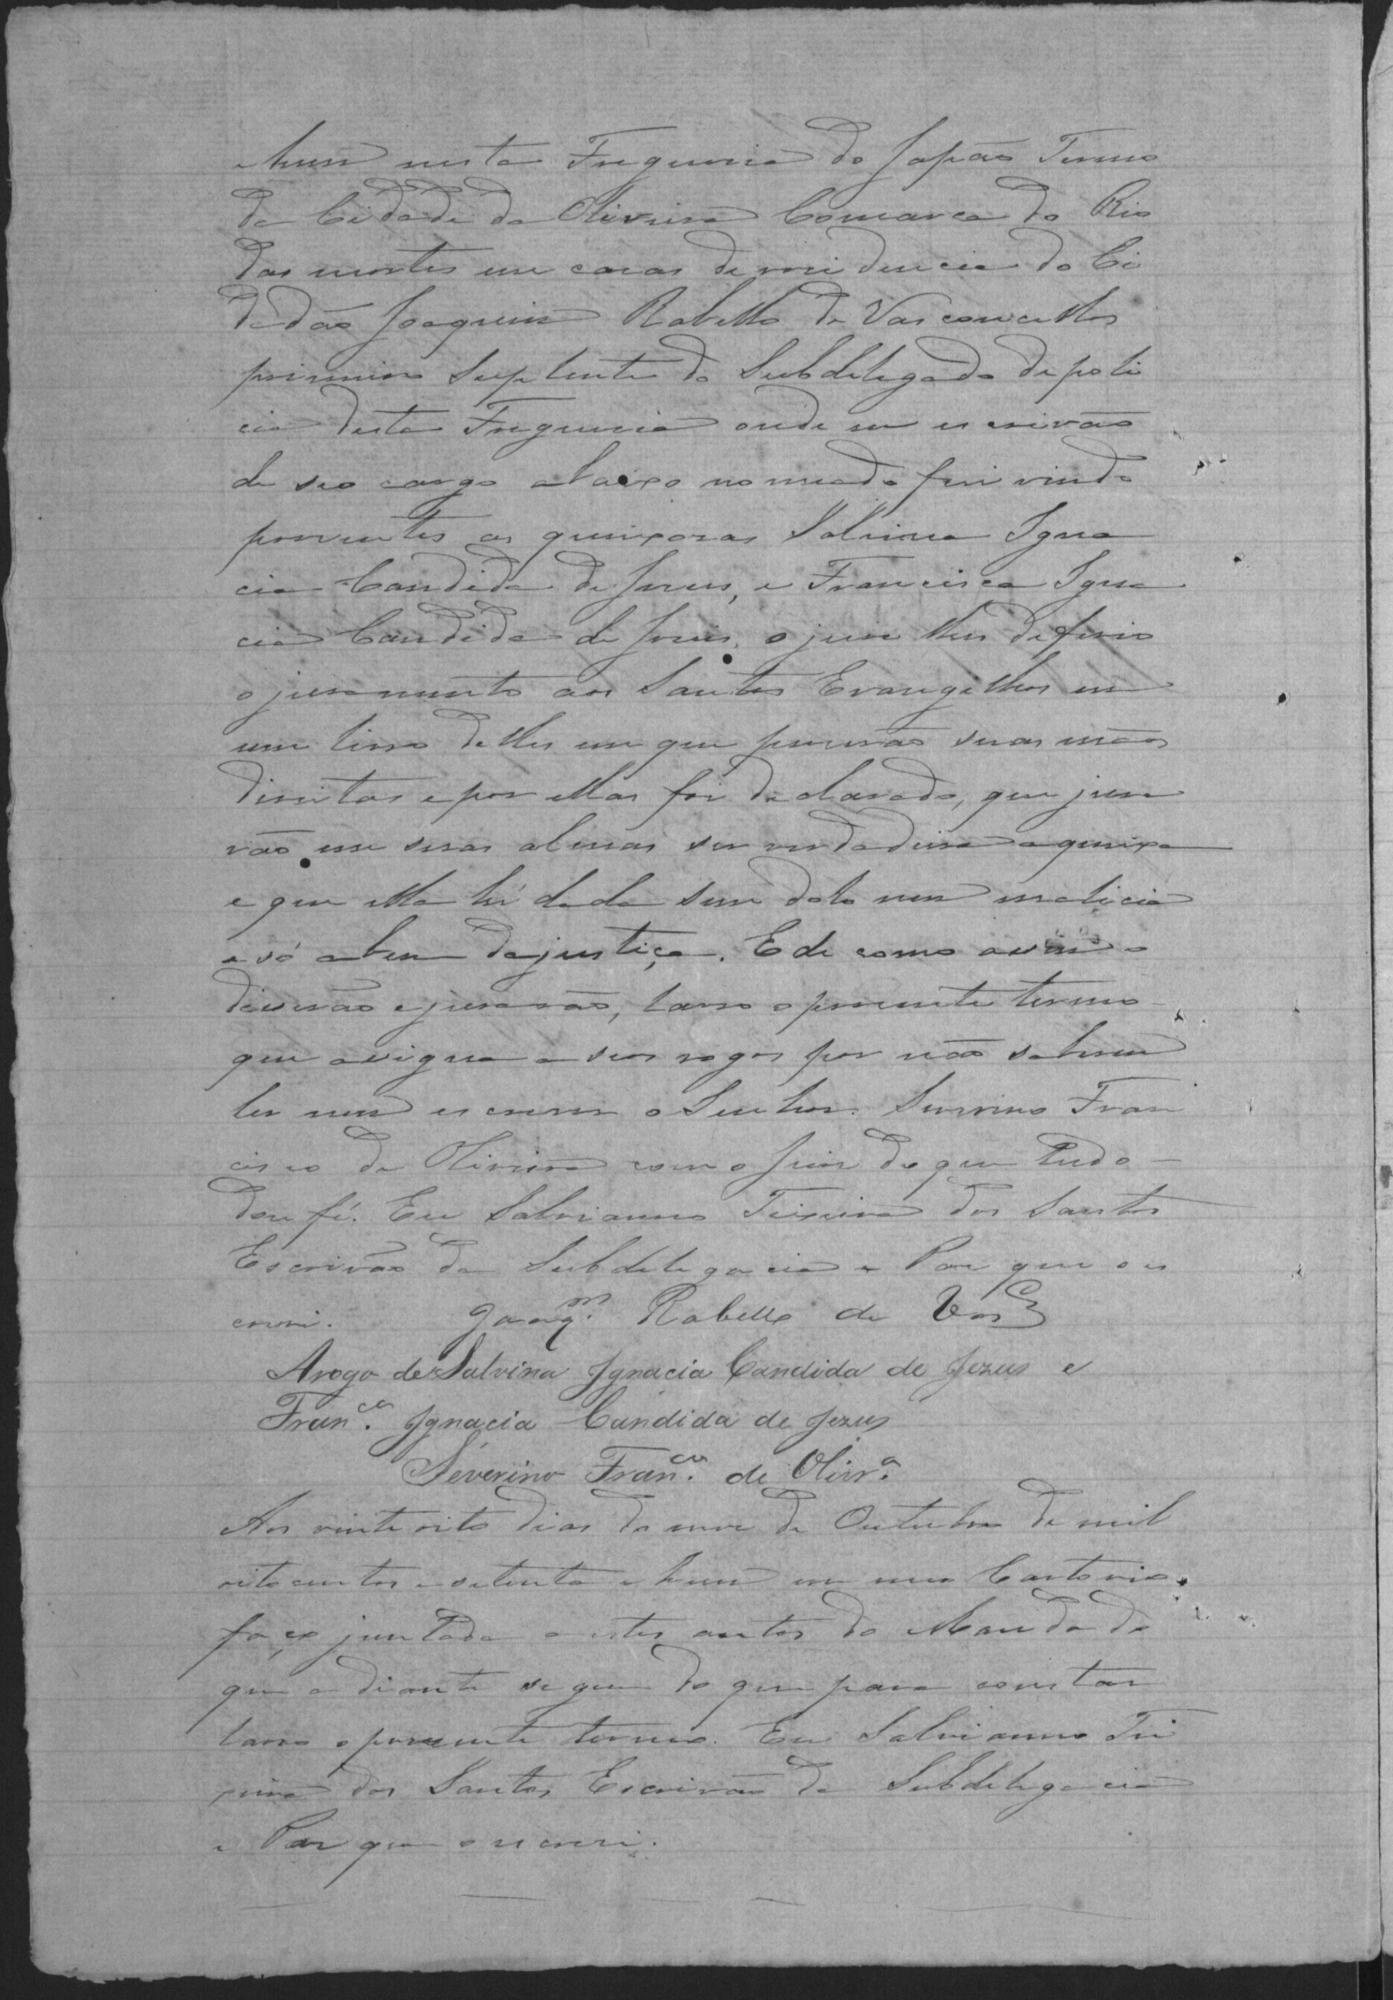 e hum nesta Freguesia do Japão Termo
da Cidade da Oliveira Comarca do Rio
das mortes em casas de residencia do Ci
dadão Joaquim Rabello de Vasconcellos
primeiro Suplente do Subdelegado de poli
cia desta Freguesia onde eu escrivão
de seo cargo abaixo nomeado fui vindo
presentes as queixosas Salvina Igna
cia Candida de Jesus, e Francisca Igna
cia Candida de Jesus, o juis lhes deferio
o juramento aos Santos Evangelhos em
um livro delles em que puserão suas mãos
direitas e por ellas foi declarado, que jura
vão em suas almas ser verdadeira a queixa
e que ella hé dada sem dolo nem malicia
e só a bem da justiça. E de como assim o
disserão e jurarão, lavro o presente termo
que assigna a seos rogos por não saberem
ler nem escrever o Senhor Severino Fran
cisco de Oliveira com o Juis do que tudo
dou fé. Eu Salvianno Teixeira dos Santos
Escrivão da Subdelegacia e Paz que o es
crevi. Joaqm. Rabello de Vasclos
Arogo de Salvina Ignacia Candida de Jezus e
Franca. Ignacia Candida de Jezus
Severino Franco. de Olivra.
Aos vinte oito dias do mez de Outubro de mil
oitocentos e setenta e hum em meo Cartorio
faço juntada a estes autos do Mandado
que a diante segue do que para constar
lavro o presente termo. Eu Salvianno Tei
xeira dos Santos Escrivão da Subdelegacia
e Paz que o escrevi.